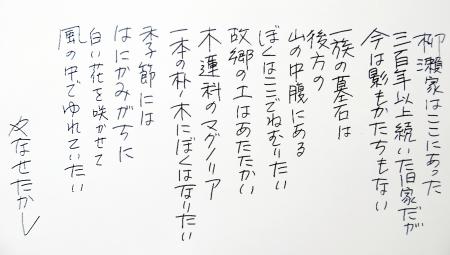 柳瀬家はここにあった
三百年以上続いた旧家だが
今は影もかたちもない
一族の墓石は
後方の
山の中腹にある
ぼくはここでねむりたい
故郷の土はあたたかい
木蓮科のマグノリア
一本の朴ノ木にぼくはなりたい
季節には
はにかみがちに
白い花を咲かせて
風の中でゆれていたい
やなせたかし